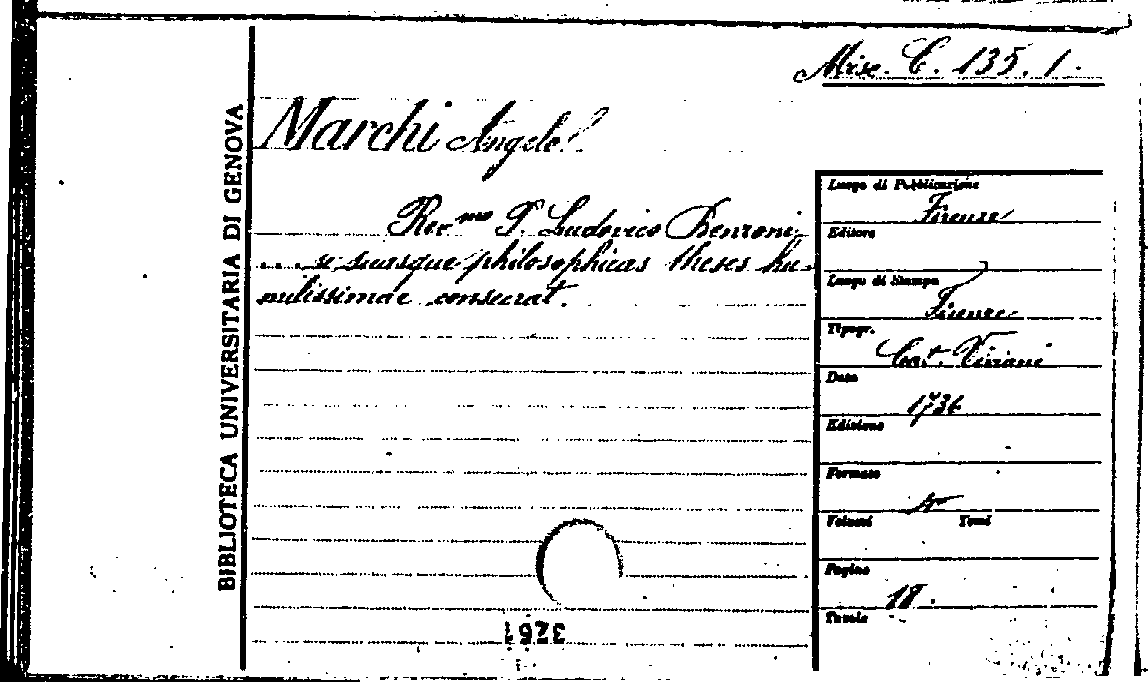 Misc. C. 135. 1.
BIBLIOTECA UNIVERSITARIA DI GENOVA
Marchi Angelo.
Rev.mo P. Ludovico Benzoni
... se suasque philosophicas theses hu-
millissimae consecrat.
Luogo di Pubblicazione
Firenze
Editore
Luogo di Stampa
Firenze
Tipogr.
Viviani
Data
1736
Edizione
Formato
4°
Volumi Tomi
Pagine
18.
Tavole
3261